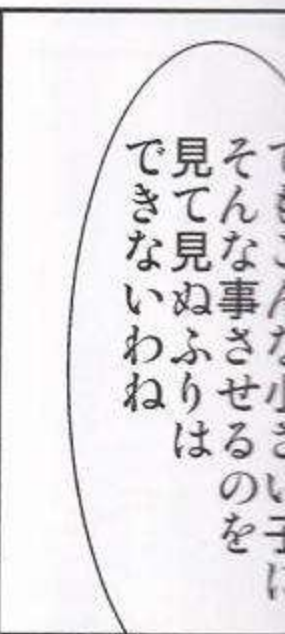 でもこんな小さい子に
そんな事させるのを
見て見ぬふりは
できないわね